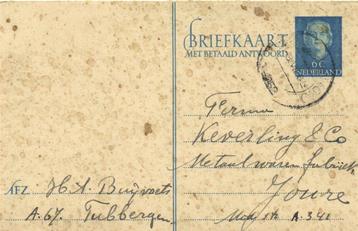 BRIEFKAART
MET BETAALD ANTWOORD
6 C
NEDERLAND
Firma
Keverling & Co
Metaalwarenfabriek
Joure
AFZ. H.A. Buyvoets
A.67. Tubbergen
A.341